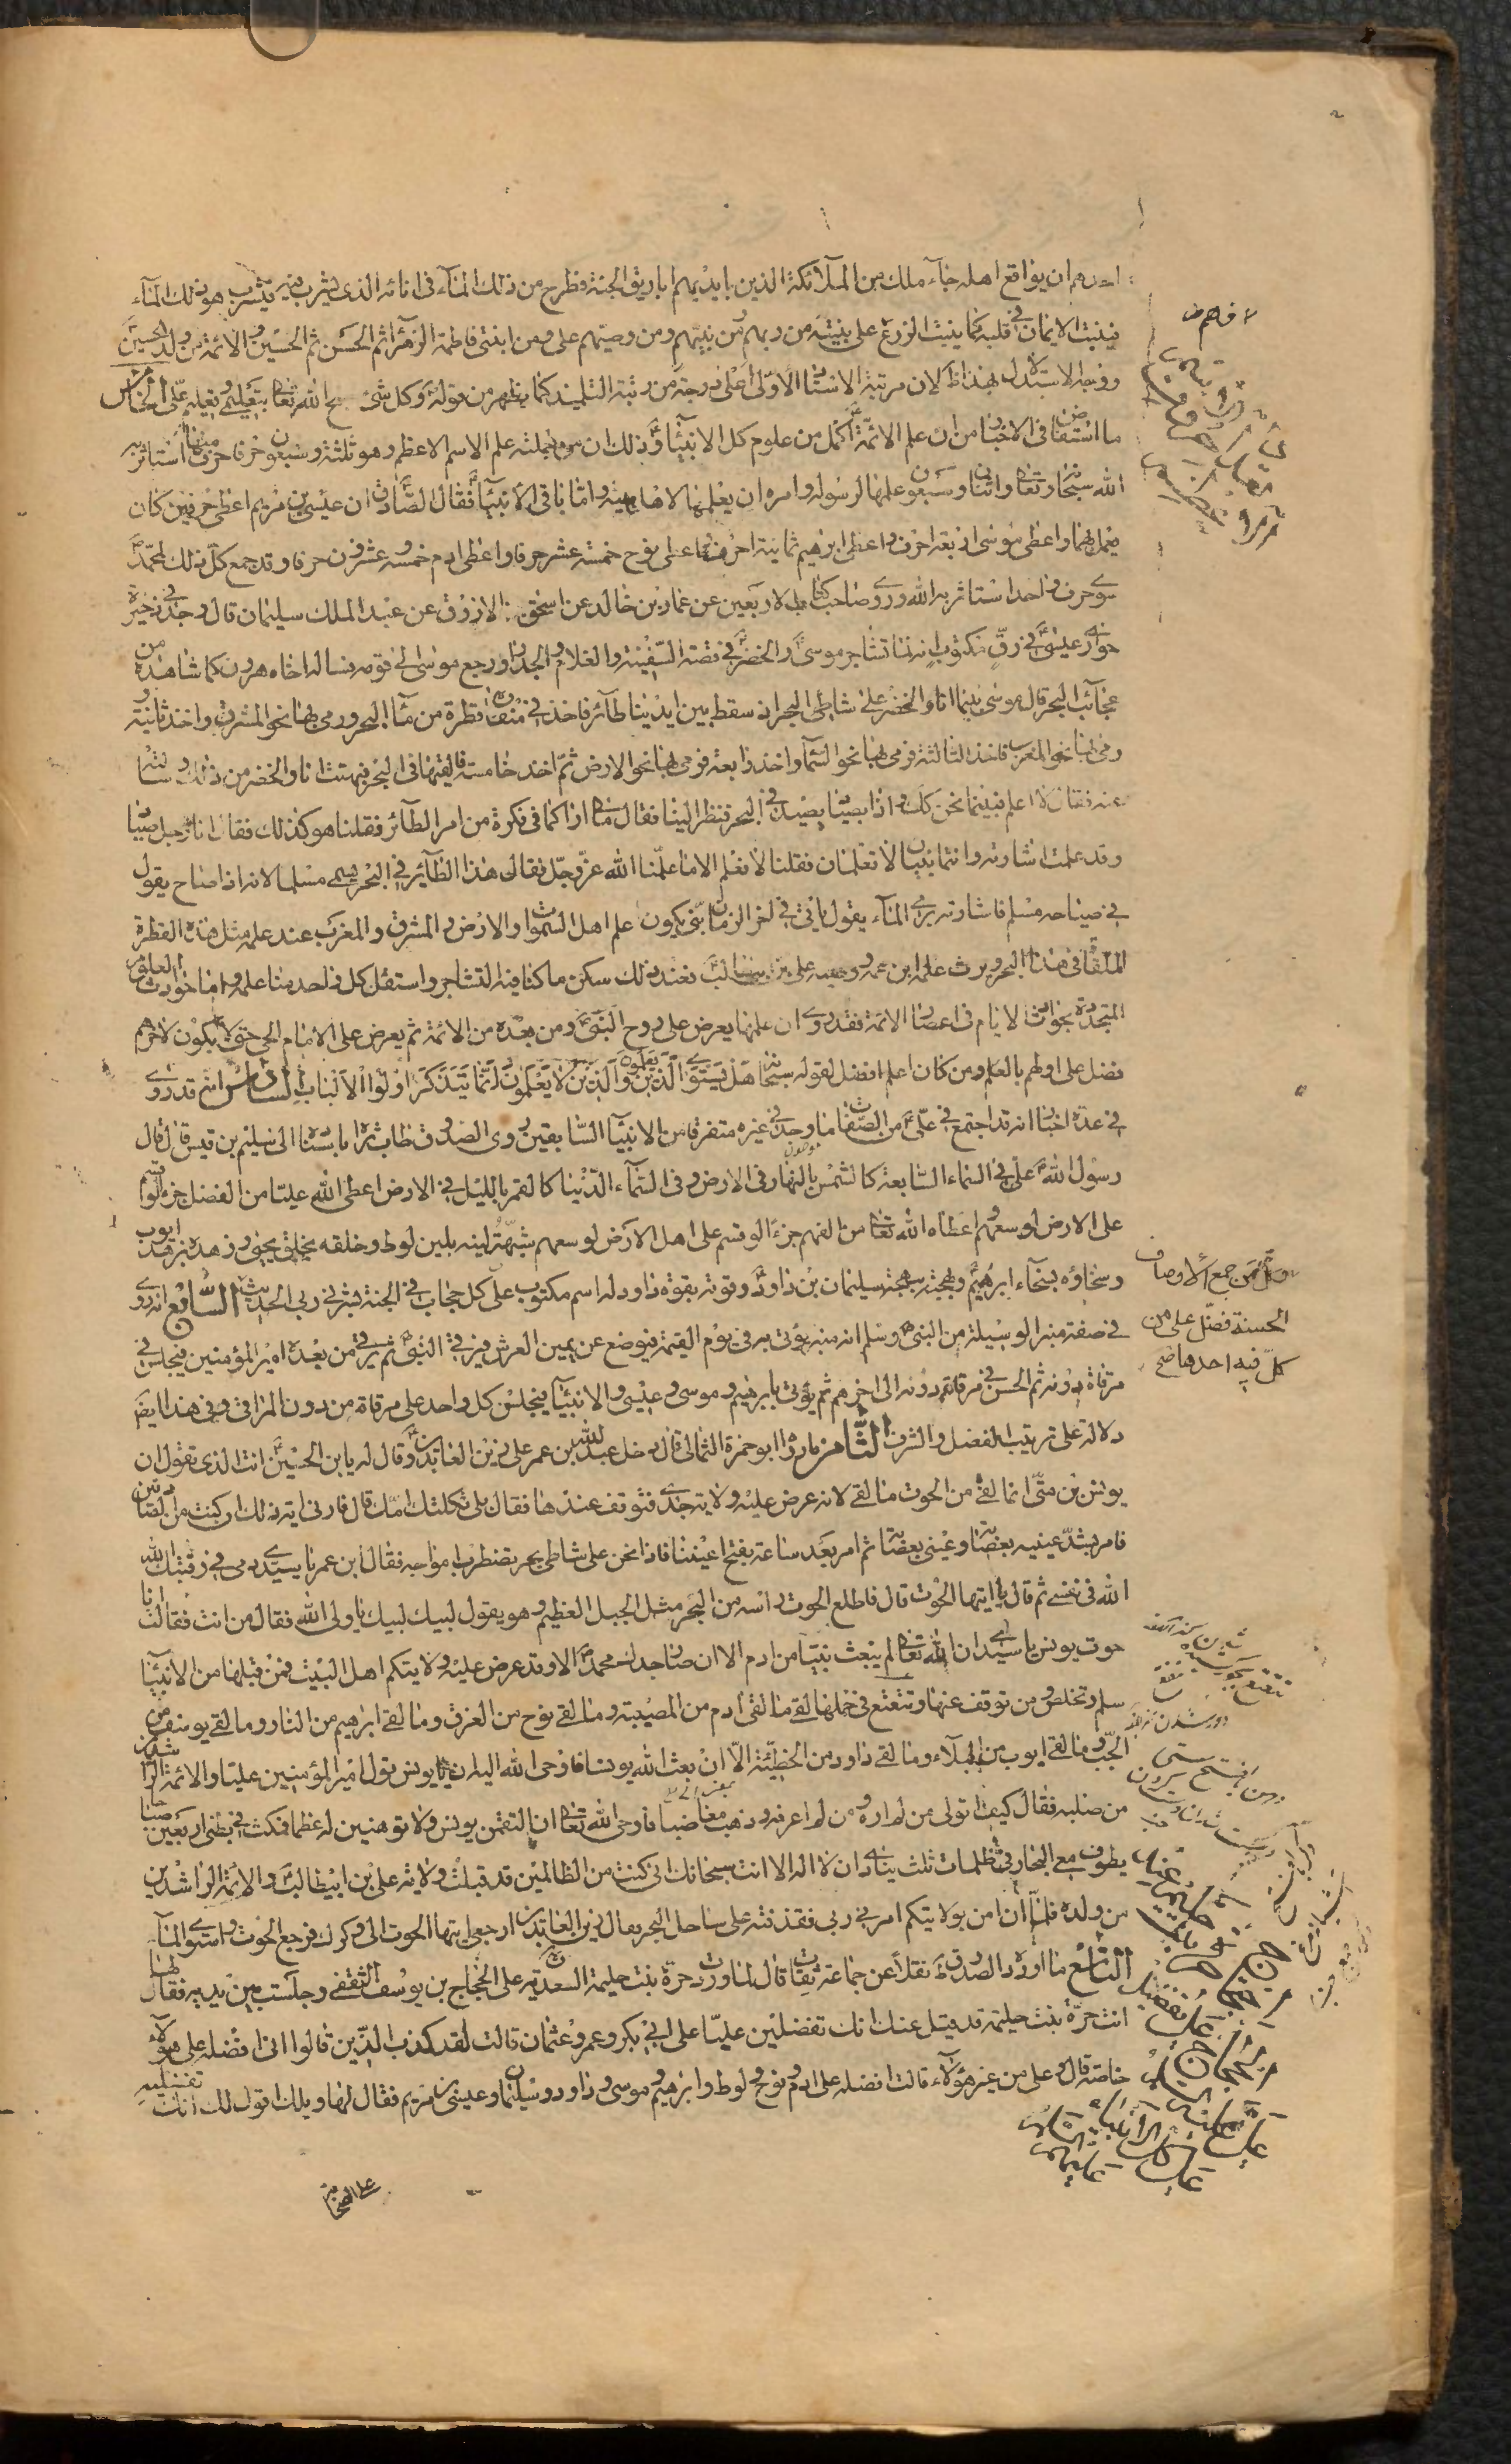 احدهم ان يواقع اهله جاء ملك من الملآئكة الذين بايديهم اباريق الجنة فطرح من ذلك المآء فى انائه الذى يشرب منه فيشرب هو ذلك المآء
فينبت الايمان فى قلبه كما ينبت الزرع على بينة من ربهم ومن نبيهم ومن وصيهم على ومن ابنتى فاطمة الزهرا ثم الحسن ثم الحسين والائمة من ولد الحسين
ووجه الاستدلال بهذا لان مرتبة الاستاد الاولى اعلى درجة من رتبة التلميذ كما يظهر من قوله وكل شئ سبح الله تعا بتعليمى وتعليم على الخامس
ما استفاض فى الاخبار من ان علم الائمة اكمل من علوم كل الانبيآ وذلك ان من جملته علم الاسم الاعظم وهو ثلثة وسبعون حرفا حرف منها استاثر به
الله سبحانه وتعا واثنان وسبعون علمها لرسوله وامره ان يعلمها لاهل بيته واما باقى الانبيآ فقال الصادق ان عيسى بن مريم اعطى حرفين كان
يعمل بهما واعطى موسى اربعة احرف واعطى ابرهيم ثمانية احرف واعطى نوح خمسة عشر حرفا واعطى ادم خمسه وعشرون حرفا وقد جمع كل ذلك لمحمد
سوى حرف واحد استاثر به الله وروى صاحب كتاب الاربعين عن عمار بن خالد عن اسحق الازرق عن عبد الملك سليمان قال وجد فى ذخيرة
حوارى عيسى فى رق مكتوب انه لما تشاجر موسى والخضر فى قصة السفينة والغلام والجدار ورجع موسى الى قومه فساله اخاه هرون عما شاهده من
عجائب البحر قال موسى بينما انا والخضر على شاطى البحر اذ سقط بين ايدينا طآئر فاخذ فى منقاره قطرة من مآ البحر ورمى بها نحو المشرق واخذ ثانية
ورمى بها نحو المغرب فاخذ الثالثة فرمى بها نحو السمآ واخذ رابعة فرمى بها نحو الارض ثم اخذ خامسة فالقيها فى البحر فبهتت انا والخضر من ذلك وسالته
عنه فقال لا اعلم فبينما نحن كك واذا بصياد يصيد فى البحر فنظر الينا فقال مالى اراكما فى فكرة من امر الطآئر فقلنا هو كذلك فقال انا رجل صياد
وقد علمت اشارته وانتما نبيان لا تعلمان فقلنا لا نعلم الا ما علمنا الله عز وجل فقال هذا الطآئر فى البحر يسمى مسلما لانه اذا صاح يقول
فى صياحه مسلم فاشارته برمى المآء يقول ياتى فى اخر الزمان نبى يكون علم اهل السموات والارض والمشرق والمغرب عند علمه مثل هذه القطرة
الملقاة فى هذا البحر ويرث علمه ابن عمه ووصيه على بن ابيطالب فعند ذلك سكن ما كنا فيه التشاجر واستقل كل واحد منا علمه واما حوادث العلوم
المتجددة بحوادث الايام فى اعصار الائمة فقد روى ان علمها يعرض على روح النبى ومن بعده من الائمة ثم يعرض على الامام الحى حتى لا يكون لاخرهم
فضل على اولهم بالعلم ومن كان اعلم افضل لقوله سبحانه هل يستوى الذين يعلمون والذين لا يعلمون انما يتذكر اولوا الالباب السادس انه قد روى
فى عدة اخبار انه قد اجتمع فى على من الصفات ما وجد فى غيره متفرقا من الانبيآ السابقين روى الصدوق طاب ثراه باسناده الى سليم بن قيس قال قال
رسول الله على فى السماء السابعة كالشمس بالنهار فى الارض وفى السمآء الدنيا كالقمر بالليل فى الارض اعطى الله عليا من الفضل جزءا لو قسم
على الارض لوسعهم واعطاه الله تعا من الفهم جزءا لو قسم على اهل الارض لوسعهم شبهت لينه بلين لوط وخلقه بخلق يحيى وزهده بزهد ايوب
وسخاؤه بسخاء ابرهيم وبهجته ببهجة سليمان بن داود وقوته بقوة داود له اسم مكتوب على كل حجاب فى الجنة بشرنى ربى الحديث السابع انه روى
فى صفة منبر الوسيلة من النبى وسلم انه منبر يؤتى به فى يوم القيمة فيوضع عن يمين العرش فيرقى النبى ثم يرقى من بعده امير المؤمنين فيجلس فى
مرقاة دونه ثم الحسن فى مرقاة دونه الى اخرهم ثم يؤتى بابرهيم وموسى وعيسى والانبيآ فيجلس كل واحد على مرقاة من دون المراقى وفى هذا ايضا
دلالة على ترتيب الفضل والشرف الثامن ما رواه ابو حمزة الثمالى قال دخل عبد الله بن عمر على زين العابدين وقال له يا بن الحسين انت الذى تقول ان
يونس بن متى انما لقى من الحوت ما لقى لانه عرض عليه ولاية جدى فتوقف عندها فقال بلى ثكلتك امك قال فارنى اية ذلك ان كنت من الصادقين
فامر بشد عينيه بعصابة وعينى بعصابة ثم امر بعد ساعة بفتح اعيننا فاذا نحن على شاطى بحر تضطرب امواجه فقال ابن عمر يا سيدى دمى فى رقبتك الله
الله فى نفسى ثم قال يا ايتها الحوت قال فاطلع الحوت راسه من البحر مثل الجبل العظيم وهو يقول لبيك لبيك يا ولى الله فقال من انت فقالت انا
حوت يونس يا سيدى ان الله تعا لم يبعث نبيا من ادم الا ان صار جدك محمد الا وقد عرض عليه ولايتكم اهل البيت فمن قبلها من الانبيآ
سلم وتخلص ومن توقف عنها وتتعتع فى حملها لقى ما لقى ادم من المصيبة وما لقى نوح من الغرق وما لقى ابراهيم من النار وما لقى يوسف من
الجب وما لقى ايوب من البلآء وما لقى داود من الخطيئة الا ان بعث الله يونس فاوحى الله اليه ان يا يونس تول امير المؤمنين عليا والائمة الراشدين
من صلبه فقال كيف اتولى من لم اره ومن لم اعرفه وذهب مغاضبا فاوحى الله تعا ان التقمى يونس ولا توهنين له عظما فمكث فى بطنى اربعين صباحا
يطوف معى البحار فى ظلمات ثلث ينادى ان لا اله الا انت سبحانك انى كنت من الظالمين قد قبلت ولاية على بن ابيطالب والائمة الراشدين
من ولده فلما ان امن بولايتكم امرنى ربى فقذفته على ساحل البحر فقال زين العابدين ارجعى ايتها الحوت الى وكرك فرجع الحوت واستوى المآء
التاسع ما اورده الصدوق نقلا عن جماعة ثقات قال لما وردت حرة بنت حليمة السعدية على الحجاج بن يوسف الثقفى وجلست بين يديه فقال لها
انت حرة بنت حليمة قد قيل عنك انك تفضلين عليا على ابى بكر وعمر وعثمان قالت لقد كذب الذين قالوا انى افضله على هؤلآء
خاصة قال وعلى من غير هؤلآء قالت افضله على ادم ونوح ولوط وابرهيم وموسى وداود وسليمان وعيسى بن مريم فقال لها ويلك اقول لك انك تفضليه
على الصحابة
وكل من جمع الاوصاف
الحسنة فضل على من
كل فيه احدها صح